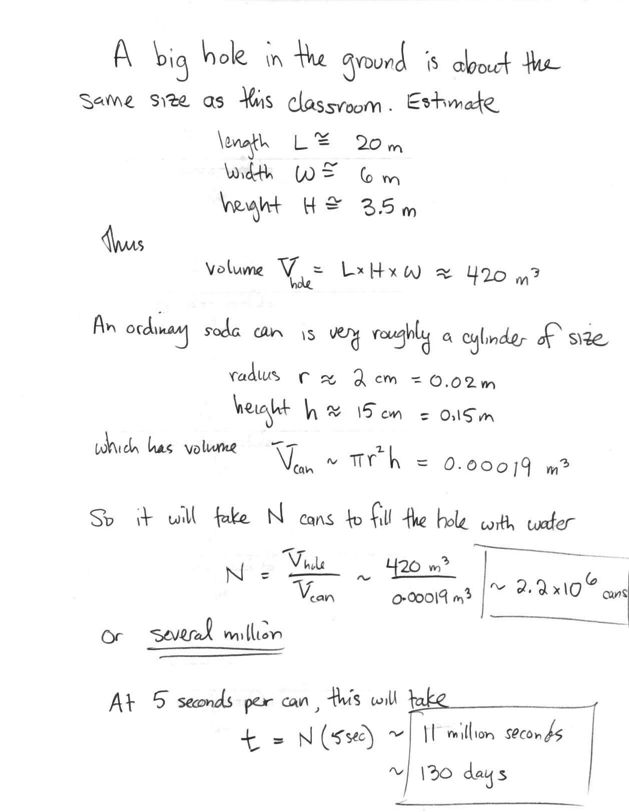 A big hole in the ground is about the
same size as this classroom. Estimate
length L ≅ 20 m
width W ≅ 6 m
height H ≅ 3.5 m
Thus
volume V_hole = L×H×W ≈ 420 m³
An ordinary soda can is very roughly a cylinder of size
radius r ≈ 2 cm = 0.02 m
height h ≈ 15 cm = 0.15 m
which has volume V_can ~ πr²h = 0.00019 m³
So it will take N cans to fill the hole with water
N = V_hole / V_can ~ 420 m³ / 0.00019 m³ ~ 2.2×10⁶ cans
or several million
At 5 seconds per can, this will take
t = N(5 sec) ~ 11 million seconds
~ 130 days